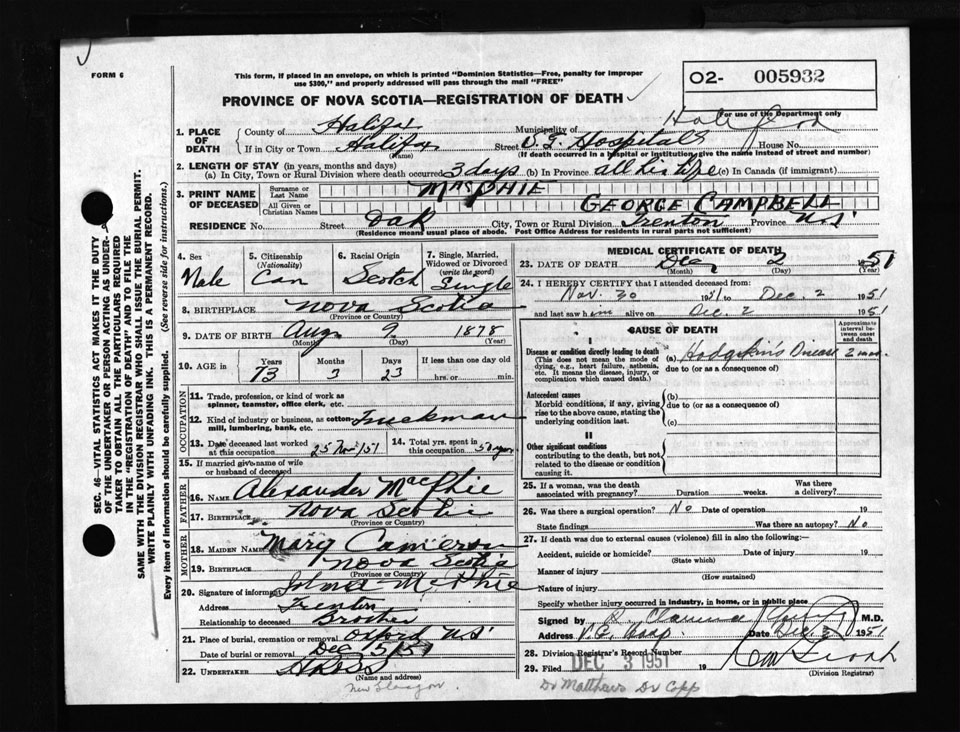 FORM 6
This form, if placed in an envelope, on which is printed "Dominion Statistics—Free, penalty for improper
use $300," and properly addressed will pass through the mail "FREE"
O2- 005932
For use of the Department only
PROVINCE OF NOVA SCOTIA—REGISTRATION OF DEATH
1. PLACE OF DEATH
County of Halifax
Municipality of
If in City or Town Halifax
(Name)
Street V.G. Hospital House No.
(If death occurred in a hospital or institution, give the name instead of street and number)
2. LENGTH OF STAY (in years, months and days)
(a) In City, Town or Rural Division where death occurred 3 days (b) In Province all his life (c) In Canada (if immigrant)
3. PRINT NAME OF DECEASED
Surname or Last Name MACPHIE
All Given or Christian Names GEORGE CAMPBELL
RESIDENCE No. Street Oak City, Town or Rural Division Trenton Province N.S.
(Residence means usual place of abode. Post Office Address for residents in rural parts not sufficient)
4. Sex Male
5. Citizenship (Nationality) Can
6. Racial Origin Scotch
7. Single, Married, Widowed or Divorced (write the word) Single
8. BIRTHPLACE Nova Scotia
(Province or Country)
9. DATE OF BIRTH Aug 9 1878
(Month) (Day) (Year)
10. AGE in Years 73 Months 3 Days 23 If less than one day old
hrs. or min.
OCCUPATION
11. Trade, profession, or kind of work as
spinner, teamster, office clerk, etc.
12. Kind of industry or business, as cotton
mill, lumbering, bank, etc. Truckman
13. Date deceased last worked
at this occupation 25 Nov/51
14. Total yrs. spent in
this occupation 50 years
15. If married give name of wife
or husband of deceased
FATHER
16. NAME Alexander MacPhie
17. BIRTHPLACE Nova Scotia
(Province or Country)
MOTHER
18. MAIDEN NAME Mary Cameron
19. BIRTHPLACE Nova Scotia
(Province or Country)
20. Signature of informant McPhie
Address Trenton
Relationship to deceased Brother
21. Place of burial, cremation or removal Oxford N.S.
Date of burial or removal Dec 5/51
22. UNDERTAKER
(Name and address)
New Glasgow
MEDICAL CERTIFICATE OF DEATH
23. DATE OF DEATH Dec 2 1951
(Month) (Day) (Year)
24. I HEREBY CERTIFY that I attended deceased from:
Nov. 30 1951 to Dec. 2 1951
and last saw him alive on Dec. 2 1951
CAUSE OF DEATH
Approximate interval between onset and death
I
Disease or condition directly leading to death
(This does not mean the mode of
dying, e.g., heart failure, asthenia,
etc. It means the disease, injury, or
complication which caused death.)
(a) Hodgkin's Disease 2 mos.
due to (or as a consequence of)
Antecedent causes
Morbid conditions, if any, giving
rise to the above cause, stating the
underlying condition last.
(b)
due to (or as a consequence of)
(c)
II
Other significant conditions
contributing to the death, but not
related to the disease or condition
causing it.
25. If a woman, was the death
associated with pregnancy? Duration weeks. Was there
a delivery?
26. Was there a surgical operation? No Date of operation 19
State findings Was there an autopsy? No
27. If death was due to external causes (violence) fill in also the following:—
Accident, suicide or homicide? Date of injury 19
(State which)
Manner of injury
(How sustained)
Nature of injury
Specify whether injury occurred in industry, in home, or in public place
Signed by M.D.
Address V.G. Hosp. Date Dec 3 1951
28. Division Registrar's Record Number
29. Filed DEC 3 1951 19
(Division Registrar)
Dr Matthews Dr Copp
SEC. 46—VITAL STATISTICS ACT MAKES IT THE DUTY
OF THE UNDERTAKER OR PERSON ACTING AS UNDER-
TAKER TO OBTAIN ALL THE PARTICULARS REQUIRED
IN THE "REGISTRATION OF DEATH" AND TO FILE THE
SAME WITH THE DIVISION REGISTRAR WHO SHALL ISSUE THE BURIAL PERMIT.
WRITE PLAINLY WITH UNFADING INK. THIS IS A PERMANENT RECORD.
Every item of information should be carefully supplied. (See reverse side for instructions.)